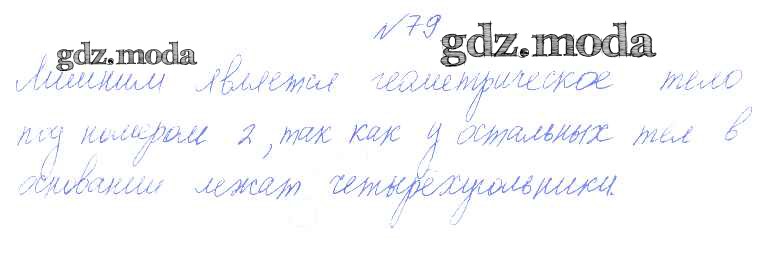 №79
gdz.moda gdz.moda
Лишним является геометрическое тело
под номером 2, так как у остальных тел в
основании лежат четырёхугольники.